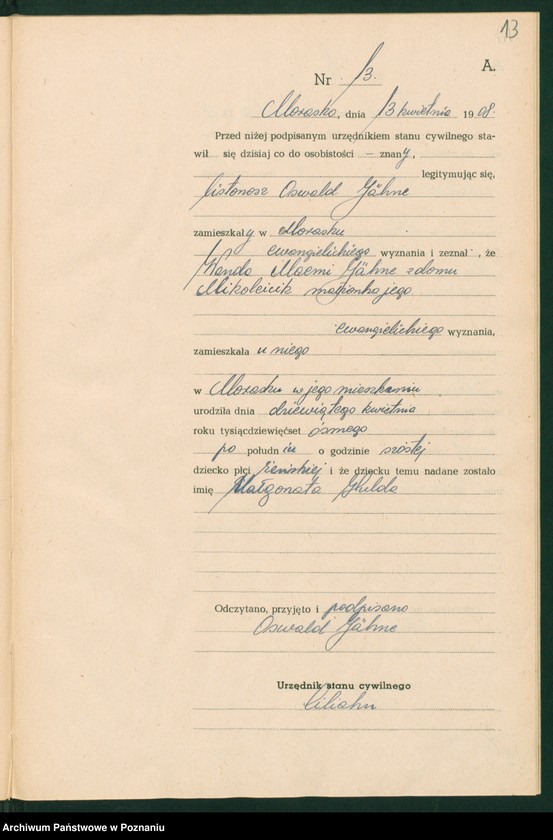 13
A.
Nr 13.
Morasko, dnia 13 kwietnia 1908.
Przed niżej podpisanym urzędnikiem stanu cywilnego sta-
wił się dzisiaj co do osobistości – znany,
legitymując się,
listonosz Oswald Jähne
zamieszkały w Morasku
ewangielickiego wyznania i zeznał, że
Wanda Maemi Jähne z domu
Mikoleicik małżonka jego
ewangielickiego wyznania,
zamieszkała u niego
w Morasku w jego mieszkaniu
urodziła dnia dziewiątego kwietnia
roku tysiącdziewięćset ósmego
po południu o godzinie szóstej
dziecko płci żeńskiej i że dziecku temu nadane zostało
imię Małgorzata Hilda
Odczytano, przyjęto i podpisano
Oswald Jähne
Urzędnik stanu cywilnego
Archiwum Państwowe w Poznaniu